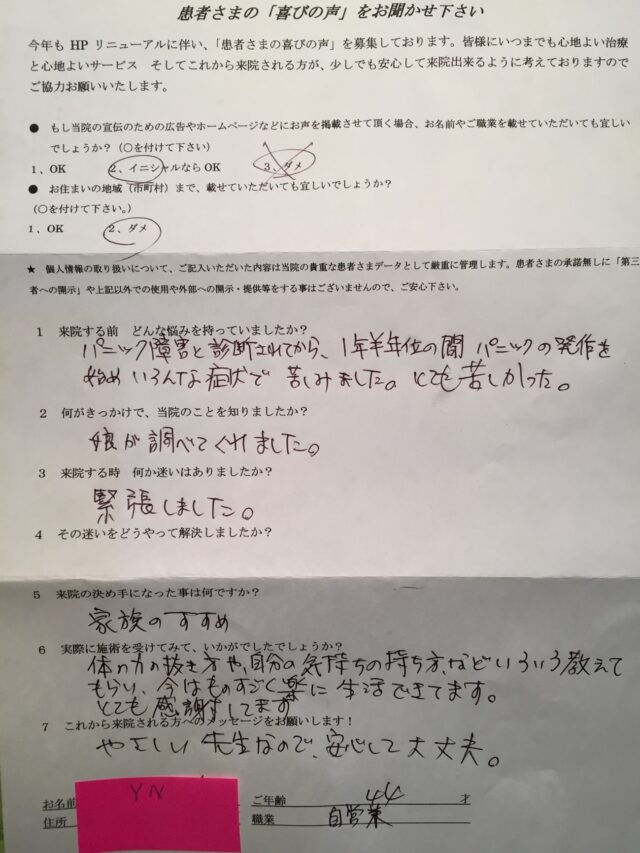 患者さまの「喜びの声」をお聞かせ下さい
今年も HP リニューアルに伴い、「患者さまの喜びの声」を募集しております。皆様にいつまでも心地よい治療
と心地よいサービス　そしてこれから来院される方が、少しでも安心して来院出来るように考えておりますので
ご協力お願いいたします。
● もし当院の宣伝のための広告やホームページなどにお声を掲載させて頂く場合、お名前やご職業を載せていただいても宜しい
でしょうか？（○を付けて下さい）
1、OK　2、イニシャルなら OK　3、ダメ
● お住まいの地域（市町村）まで、載せていただいても宜しいでしょうか？
（○を付けて下さい。）
1、OK　2、ダメ
★ 個人情報の取り扱いについて、ご記入いただいた内容は当院の貴重な患者さまデータとして厳重に管理します。患者さまの承諾無しに「第三
者への開示」や上記以外での使用や外部への開示・提供等をする事はございませんので、ご安心下さい。
1　来院する前　どんな悩みを持っていましたか？
パニック障害と診断されてから、1年半年位の間 パニックの発作を
始め いろんな症状で 苦しみました。とても苦しかった。
2　何がきっかけで、当院のことを知りましたか？
娘が調べてくれました。
3　来院する時　何か迷いはありましたか？
緊張しました。
4　その迷いをどうやって解決しましたか？
5　来院の決め手になった事は何ですか？
家族のすすめ
6　実際に施術を受けてみて、いかがでしたでしょうか？
体の力の抜き方や、自分の気持ちの持ち方、などいろいろ教えて
もらい、今はものすごく楽に 生活できてます。
とても感謝してます
7　これから来院される方へのメッセージをお願いします！
やさしい 先生なので、安心して大丈夫。
お名前 YN　ご年齢 44 才
住所　職業 自営業